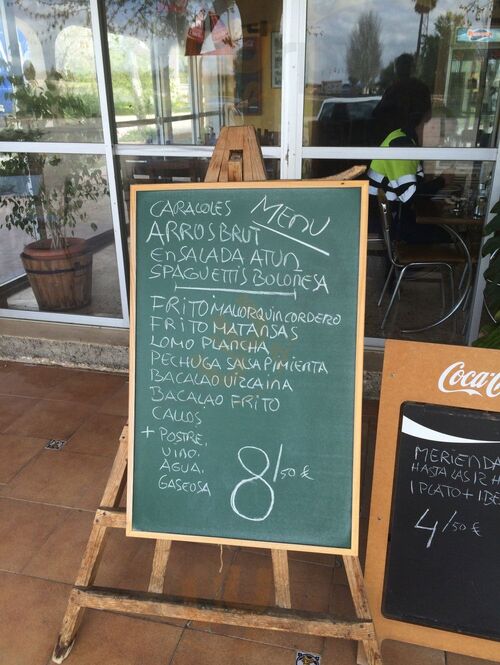 MENU
CARACOLES
ARROSBRUT
ENSALADA ATUN
SPAGUETTIS BOLONESA
FRITO MALLORQUIN CORDERO
FRITO MATANSAS
LOMO PLANCHA
PECHUGA SALSA PIMIENTA
BACALAO VIZCAINA
BACALAO FRITO
CALLOS
+ POSTRE,
VINO.
AGUA.
GASEOSA
8/50 €
Coca-C
MERIENDA
HASTA LAS 12 H
1 PLATO + 1 BE
4/50 €